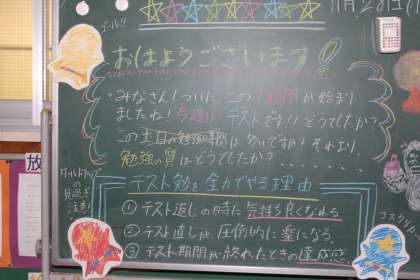 ゴール!!
11月28日(月
おはようございます!
・みなさん!ついに、この1週間が始まり
ましたね!今週はテストです!!どうでしたか?
この土日の勉強時間は多いですか?それより、
勉強の質はどうでしたか?・・・・・
テスト勉を全力でやる理由
① テスト返しの時に気持ち良くなれる。
② テスト直しが圧倒的に楽になる。
③ テスト期間が終わったときの達成感
ワールドカップの
見過ぎ
注意!
コスタリカ
放